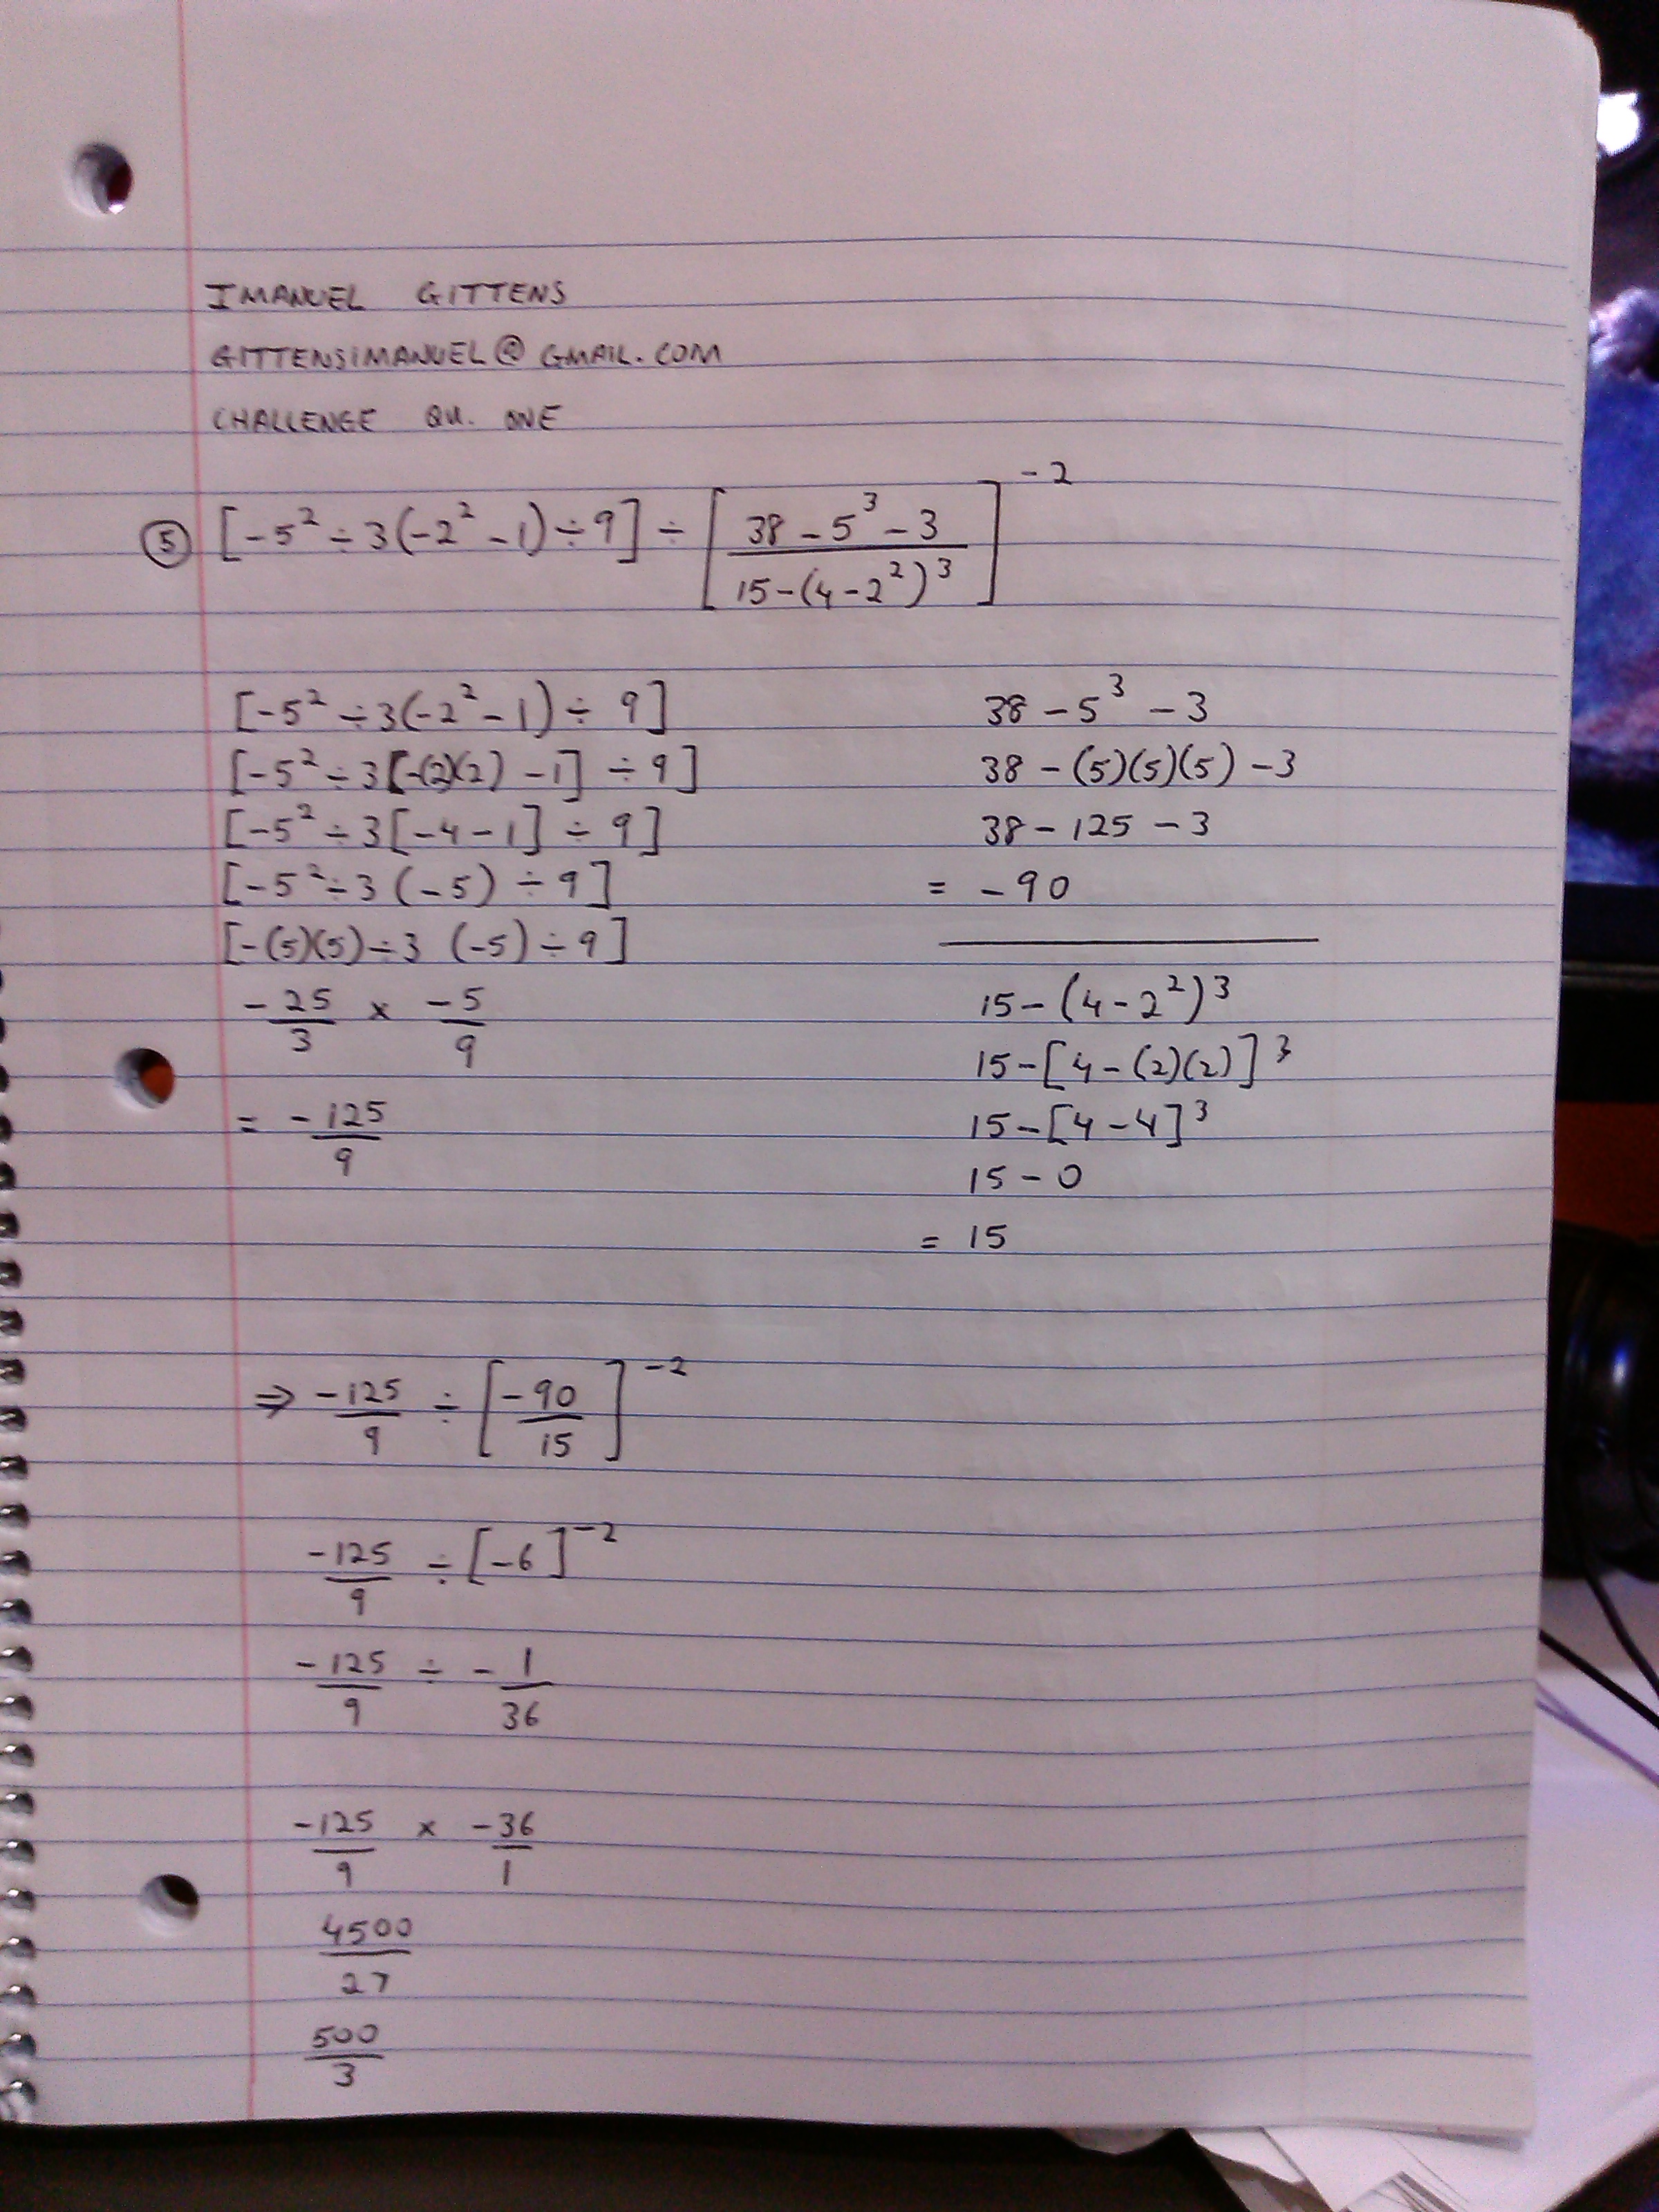 IMANUEL GITTENS
GITTENSIMANUEL@GMAIL.COM
CHALLENGE QU. ONE
⑤ [-5² ÷ 3(-2² - 1) ÷ 9] ÷ [(38 - 5³ - 3)/(15 - (4 - 2²)³)]⁻²
[-5² ÷ 3(-2² - 1) ÷ 9]
[-5² ÷ 3[-(2)(2) - 1] ÷ 9]
[-5² ÷ 3[-4 - 1] ÷ 9]
[-5² ÷ 3 (-5) ÷ 9]
[-(5)(5) ÷ 3 (-5) ÷ 9]
-25/3 × -5/9
= -125/9
38 - 5³ - 3
38 - (5)(5)(5) - 3
38 - 125 - 3
= -90
15 - (4 - 2²)³
15 - [4 - (2)(2)]³
15 - [4 - 4]³
15 - 0
= 15
⇒ -125/9 ÷ [-90/15]⁻²
-125/9 ÷ [-6]⁻²
-125/9 ÷ -1/36
-125/9 × -36/1
4500/27
500/3